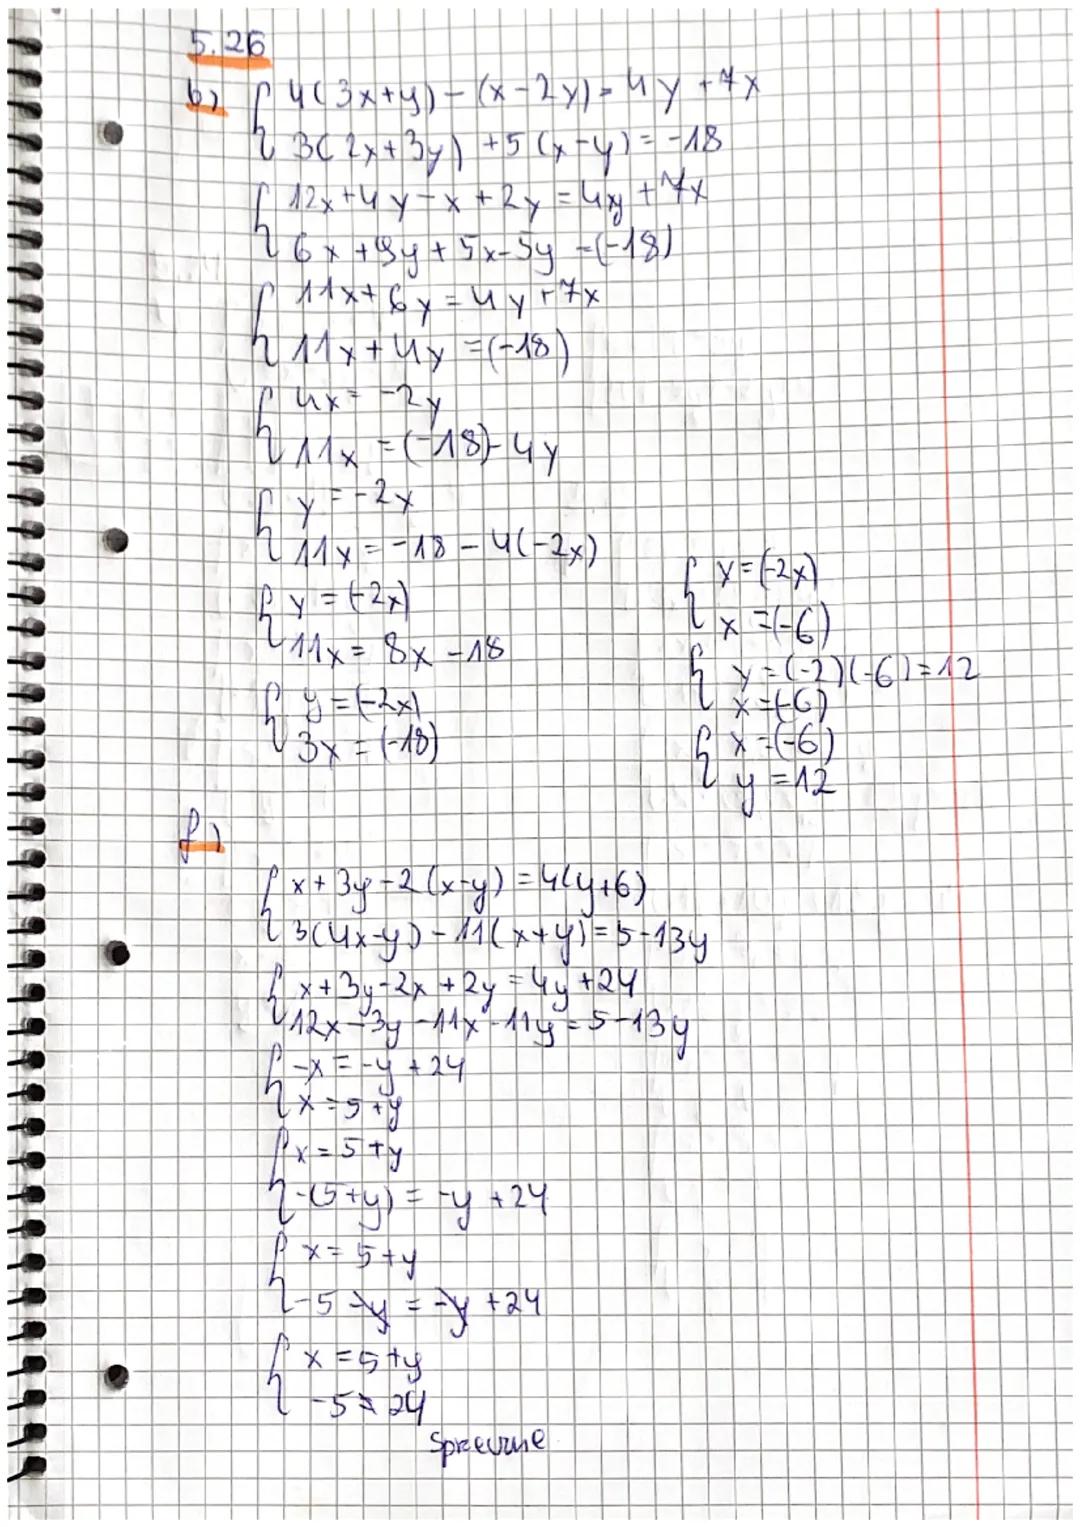 5.26
b) { 4(3x+y) - (x-2y) = 4y + 7x
3(2x+3y) + 5(x-y) = -18
{ 12x+4y-x+2y = 4y + 7x
6x + 9y + 5x-5y = (-18)
{ 11x + 6y = 4y + 7x
11x + 4y = (-18)
{ 4x = -2y
11x = (-18) - 4y
{ y = -2x
11x = -18 - 4(-2x)
{ y = (-2x)
11x = 8x - 18
{ y = (-2x)
3x = (-18)
{ y = (-2x)
x = (-6)
{ y = (-2)(-6) = 12
x = (-6)
{ x = (-6)
y = 12
f)
{ x + 3y - 2(x-y) = 4(y+6)
3(4x-y) - 11(x+y) = 5-13y
{ x+3y-2x+2y = 4y+24
12x-3y-11x-11y = 5-13y
{ -x = -y + 24
x = 5+y
{ x = 5+y
-(5+y) = -y + 24
{ x = 5+y
-5 -y = -y + 24
{ x = 5+y
-5 ≠ 24
sprzeczne